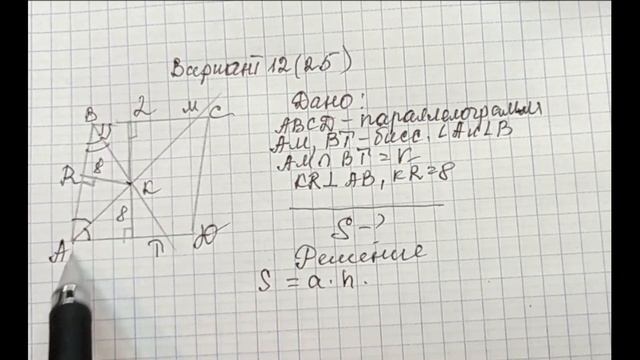 Вариант 12 (25)
Дано:
ABCD - параллелограмм
AM, BT - бисс. ∠A и ∠B
AM ∩ BT = K
KR ⊥ AB, KR = 8
S - ?
Решение
S = a · h.
B 2 M C
R 8 K
8
A T D